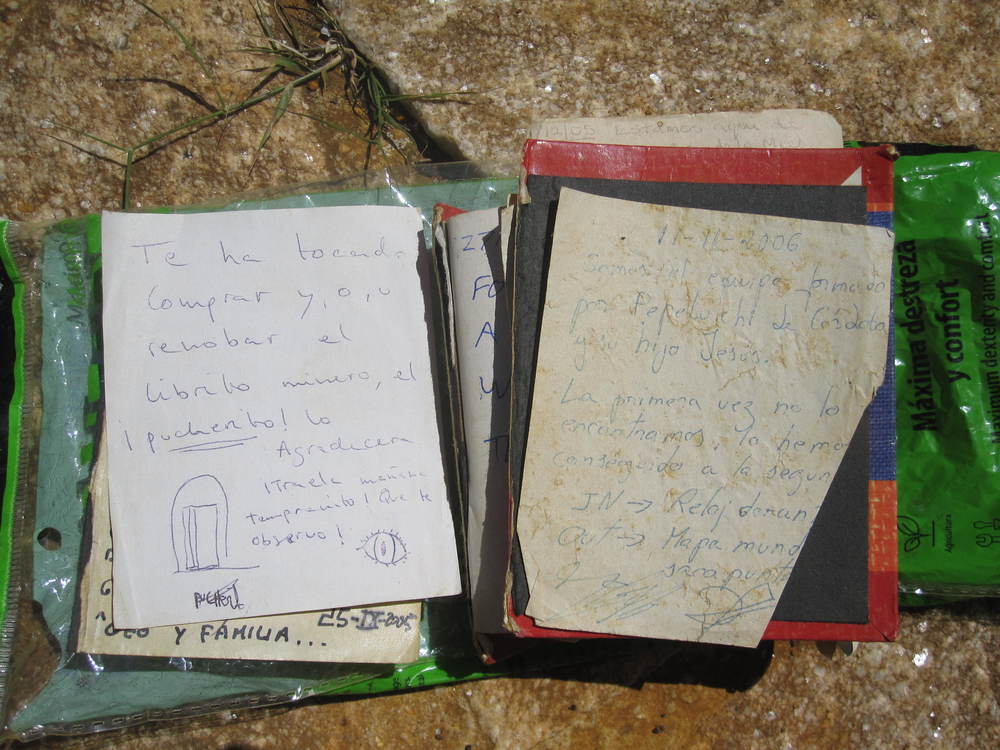 Te ha tocado
Comprar y, o, u
renobar el
librito minero, el
¡pucherito! lo
Agradecera
¡Traela mañana
tempranito! Que te
observo!
Y FÁMILIA...
25-IX-2005
12/05 Estamos aqui
11-11-2006
Somos el equipo formado
por Pepeluchi de Córdoba
y su hijo Jesús.
La primera vez no lo
encontramos, lo hemo
conseguido a la segun
IN → Reloj
Out → Mapa mund
sacapunt
Máxima destreza
y confort
Maximum dexterity and comfort
Agricultura